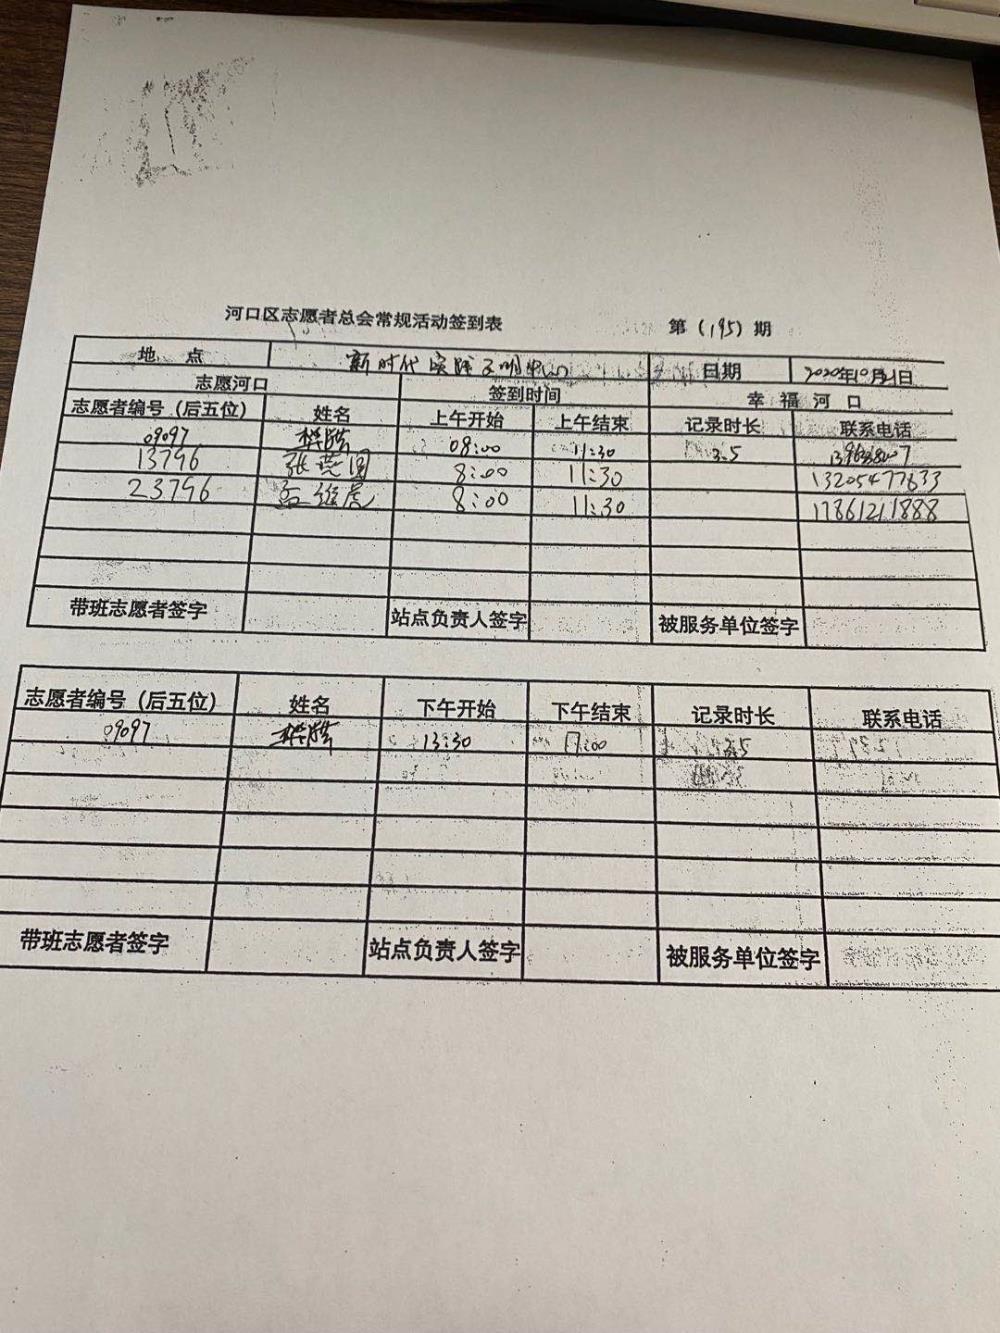 河口区志愿者总会常规活动签到表 第（195）期
地 点 新时代实践文明中心 日期 2020年10月21日
志愿河口 签到时间 幸 福 河 口
志愿者编号（后五位） 姓名 上午开始 上午结束 记录时长 联系电话
09097 08:00 11:30 3.5
13796 8:00 11:30 13205477633
23796 8:00 11:30 17861211888
带班志愿者签字 站点负责人签字 被服务单位签字
志愿者编号（后五位） 姓名 下午开始 下午结束 记录时长 联系电话
09097 13:30 17:00 3.5
带班志愿者签字 站点负责人签字 被服务单位签字